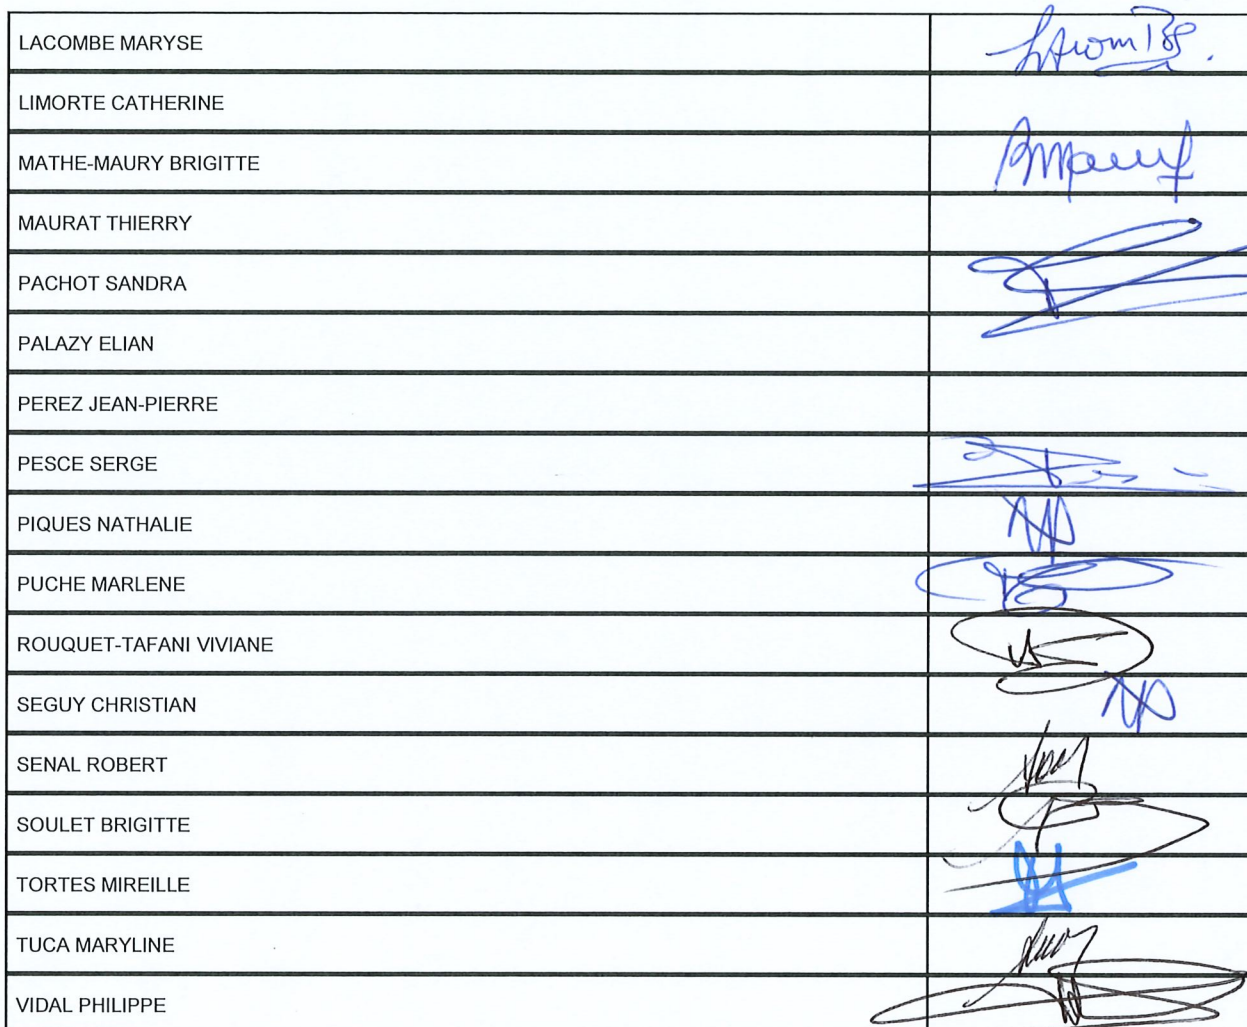 LACOMBE MARYSE
LIMORTE CATHERINE
MATHE-MAURY BRIGITTE
MAURAT THIERRY
PACHOT SANDRA
PALAZY ELIAN
PEREZ JEAN-PIERRE
PESCE SERGE
PIQUES NATHALIE
PUCHE MARLENE
ROUQUET-TAFANI VIVIANE
SEGUY CHRISTIAN
SENAL ROBERT
SOULET BRIGITTE
TORTES MIREILLE
TUCA MARYLINE
VIDAL PHILIPPE